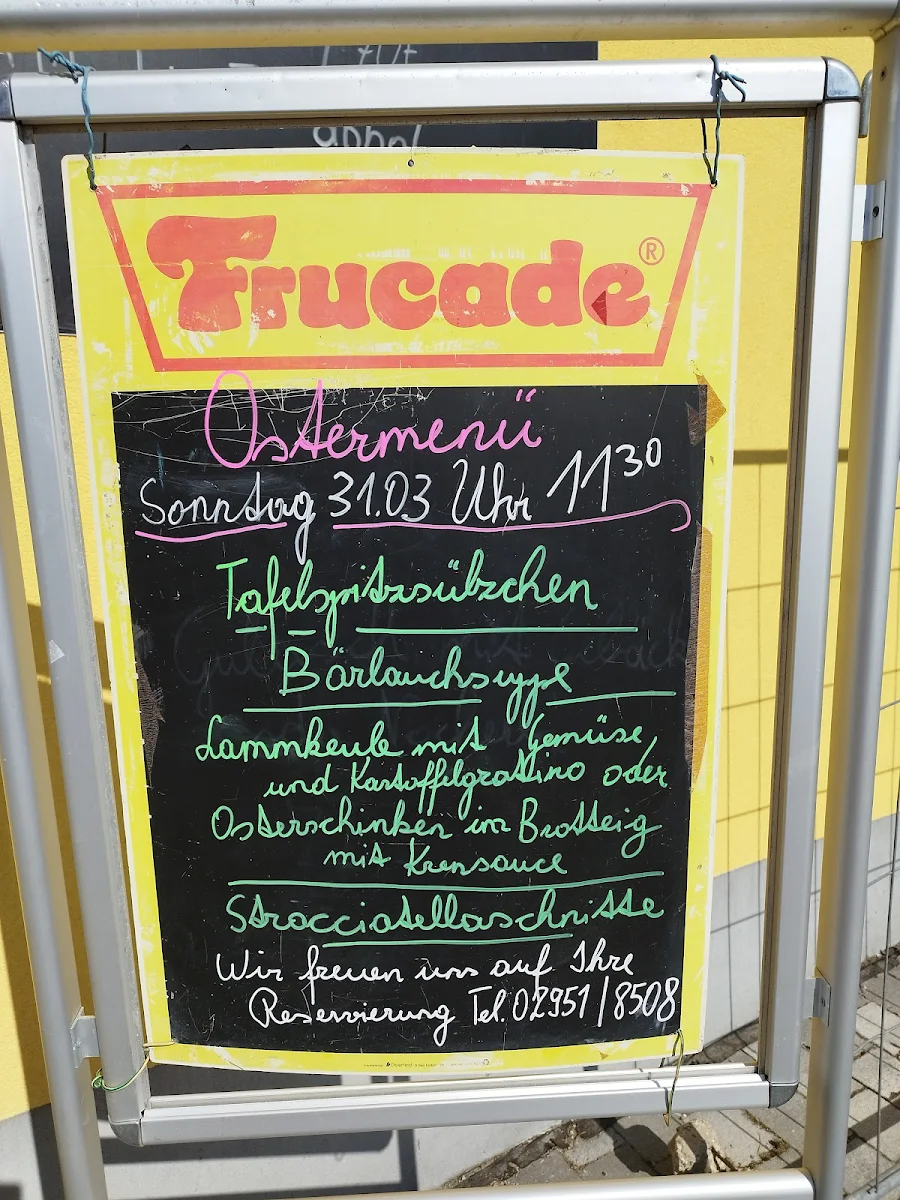 Frucade®
Ostermenü
Sonntag 31.03 Uhr 11³⁰
Tafelspitzsülzchen
Bärlauchsuppe
Lammkeule mit Gemüse,
und Kartoffelgratino oder
Osterschinken im Brotteig
mit Krensauce
Stracciatellaschnitte
Wir freuen uns auf Ihre
Reservierung Tel. 02951/8508